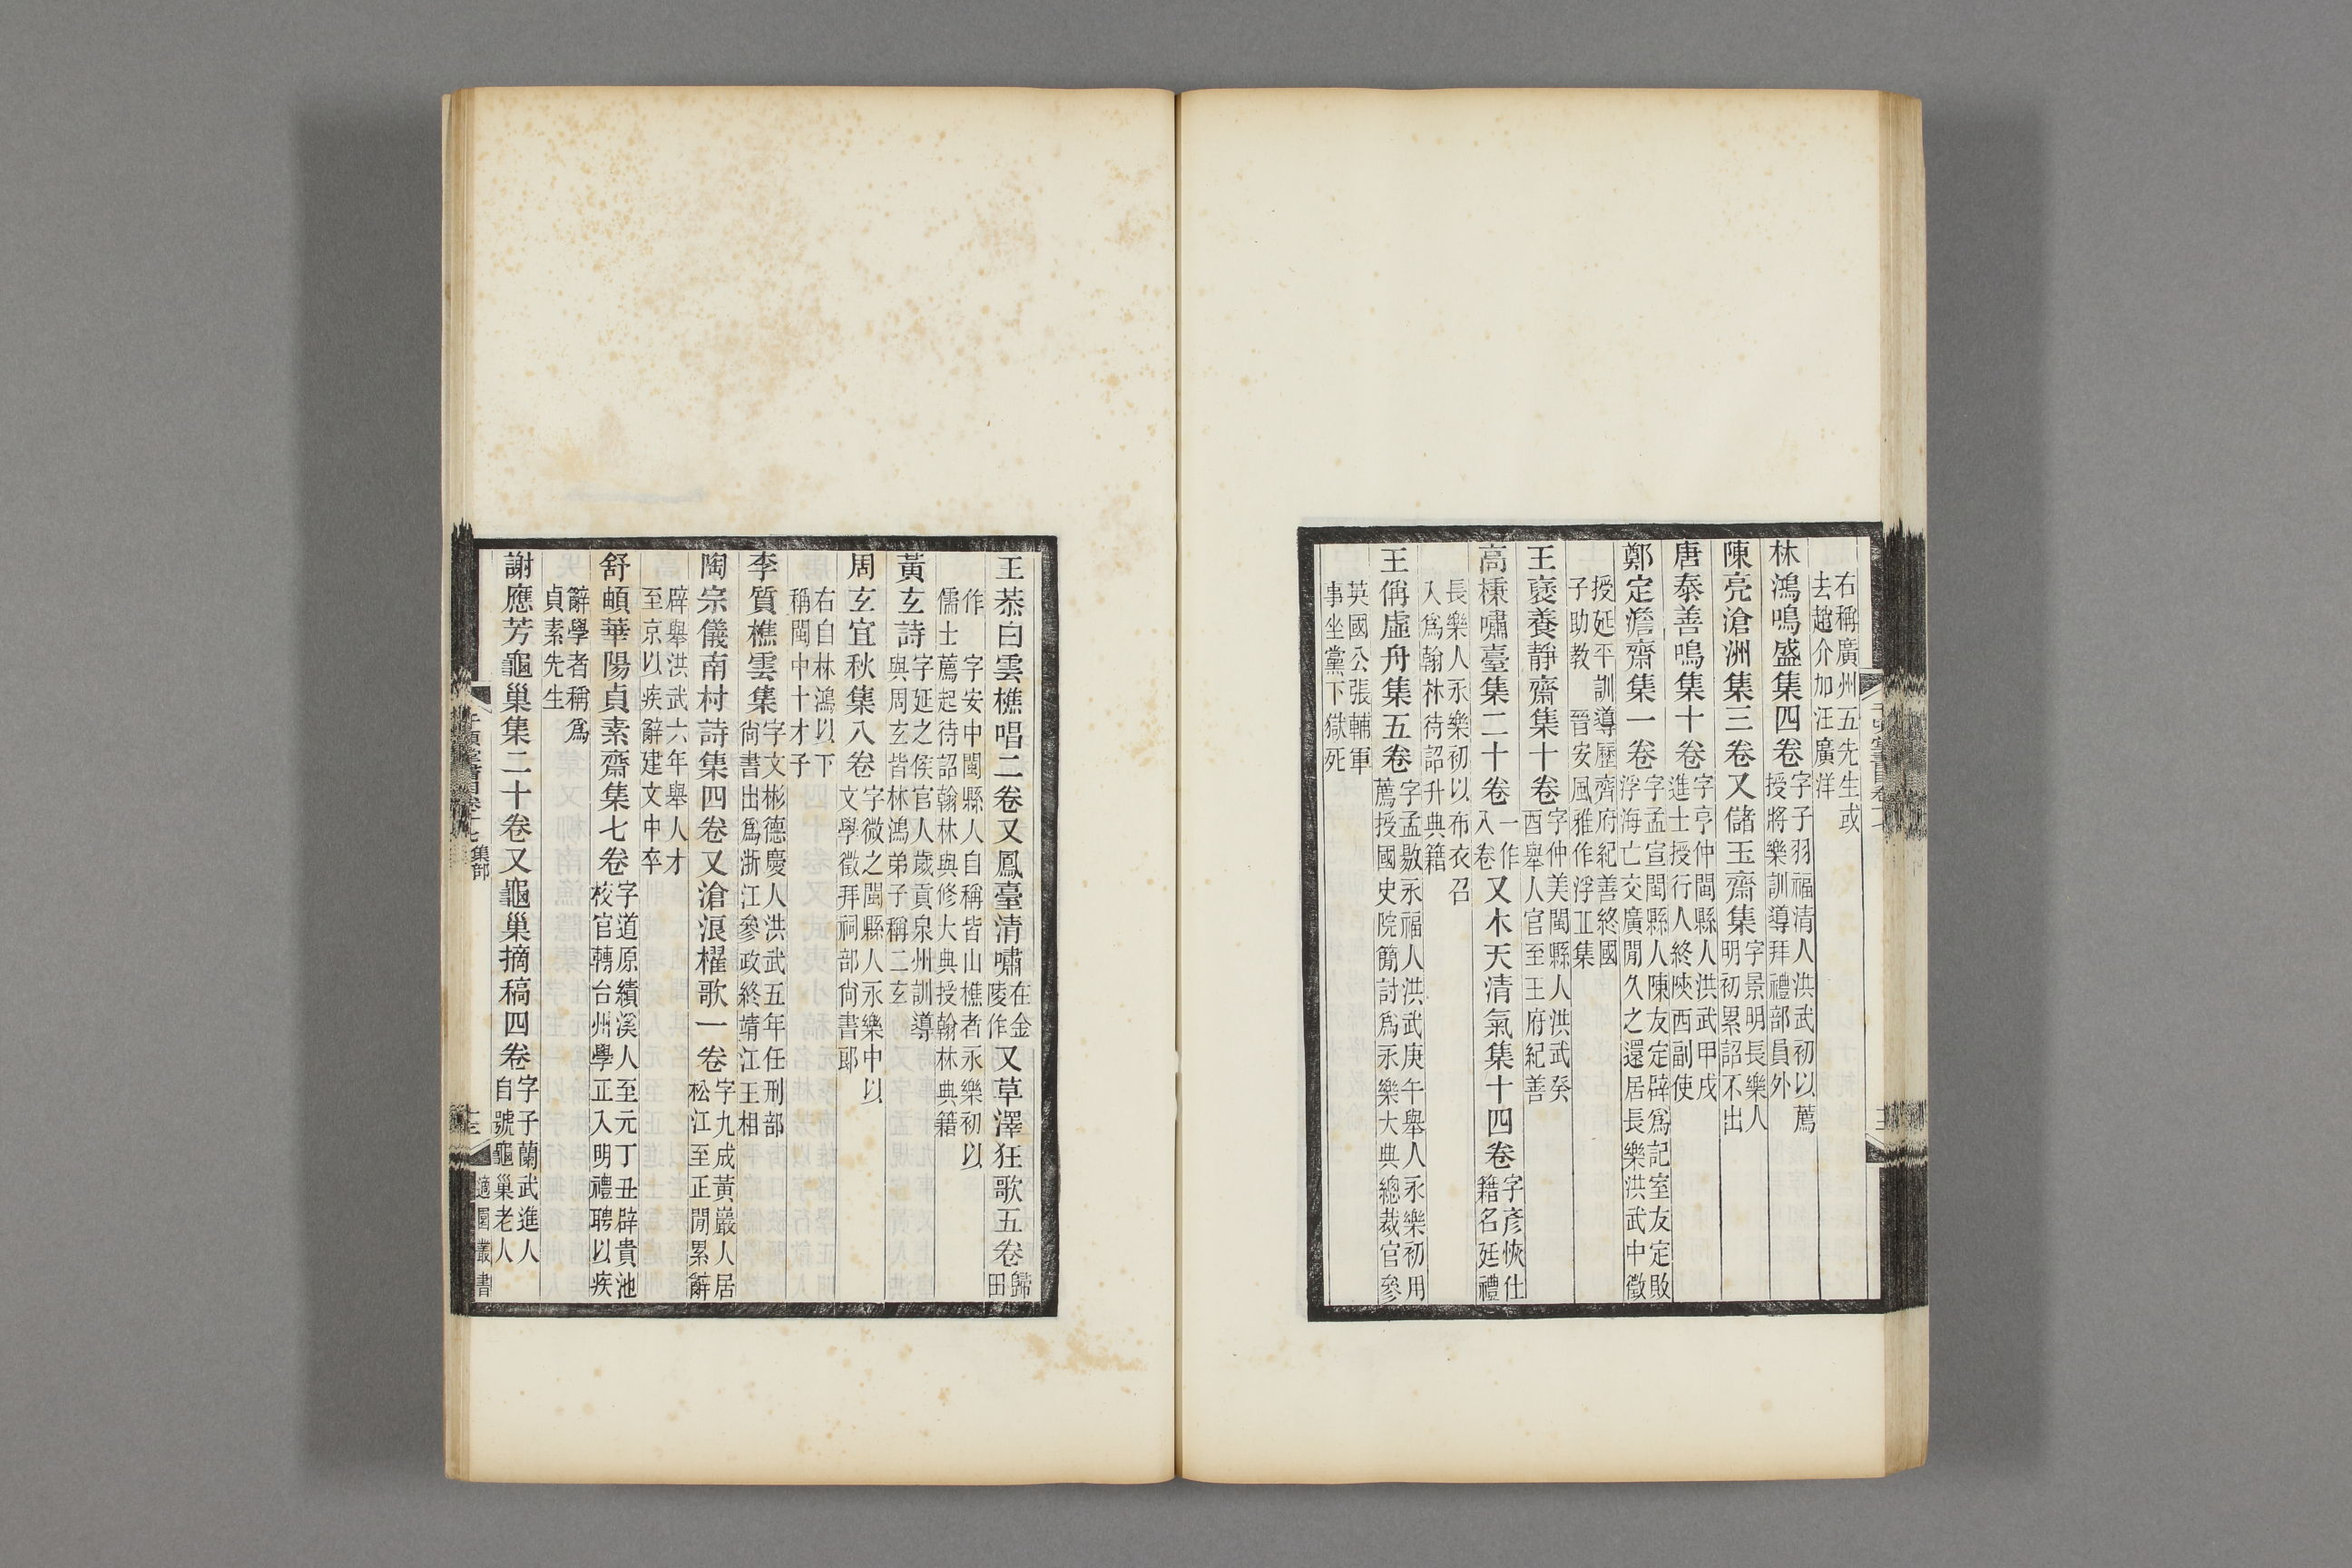 右稱廣州五先生或
去趙介加汪廣洋
林鴻鳴盛集四卷字子羽福清人洪武初以薦
授將樂訓導拜禮部員外
陳亮滄洲集三卷又儲玉齋集字景明長樂人
明初累詔不出
唐泰善鳴集十卷字亨仲閩縣人洪武甲戌
進士授行人終陝西副使
鄭定澹齋集一卷字孟宣閩縣人陳友定辟爲記室友定敗
浮海亡交廣閒久之還居長樂洪武中徵
授延平訓導歷齊府紀善終國
子助教 晉安風雅作浮丘集
王褒養靜齋集十卷字仲美閩縣人洪武癸
酉舉人官至王府紀善
高棅嘯臺集二十卷一作
入卷又木天清氣集十四卷字彥恢仕
籍名廷禮
長樂人永樂初以布衣召
入爲翰林待詔升典籍
王偁虛舟集五卷字孟敭永福人洪武庚午舉人永樂初用
薦授國史院簡討爲永樂大典總裁官參
英國公張輔軍
事坐黨下獄死
王恭白雲樵唱二卷又鳳臺清嘯在金
陵作又草澤狂歌五卷歸
田
作 字安中閩縣人自稱皆山樵者永樂初以
儒士薦起待詔翰林與修大典授翰林典籍
黃玄詩字延之侯官人歲貢泉州訓導
與周玄皆林鴻弟子稱二玄
周玄宜秋集八卷字微之閩縣人永樂中以
文學徵拜祠部尙書郎
右自林鴻以下
稱閩中十才子
李質樵雲集字文彬德慶人洪武五年任刑部
尙書出爲浙江參政終靖江王相
陶宗儀南村詩集四卷又滄浪櫂歌一卷字九成黃巖人居
松江至正閒累辭
辟舉洪武六年舉人才
至京以疾辭建文中卒
舒頔華陽貞素齋集七卷字道原績溪人至元丁丑辟貴池
校官轉台州學正入明禮聘以疾
辭學者稱爲
貞素先生
謝應芳龜巢集二十卷又龜巢摘稿四卷字子蘭武進人
自號龜巢老人
千頃堂書目卷十七 集部
十三
適園叢書